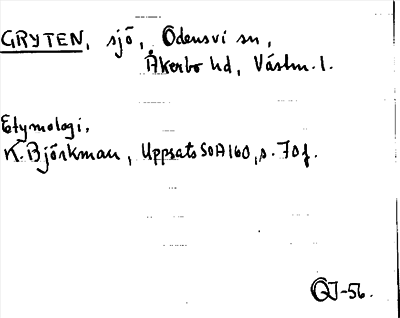 GRYTEN, sjö, Odensvi sn,
Åkerbo hd, Västm. l.
Etymologi,
K. Björkman, Uppsats SOA 160, s. 70 f.
OJ-56.